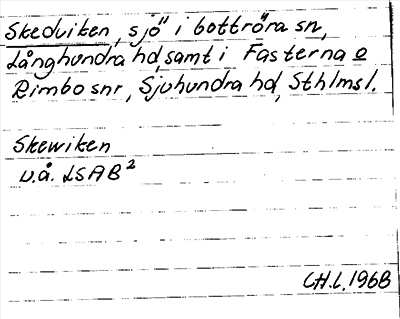 Skedviken, sjö i bottröra sn,
Långhundra hd, samt i Fasterna o
Rimbo snr, Sjuhundra hd, Sthlms l.
Skewiken
u.å. LSAB²
CH.L. 1968